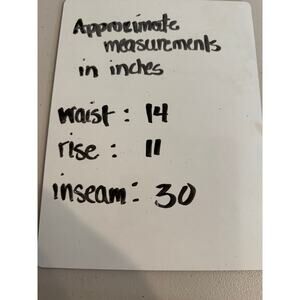 Approximate
measurements
in inches
waist: 14
rise: 11
inseam: 30